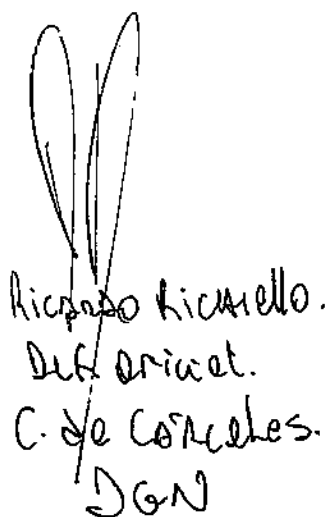 Ricardo Richiello.
Def. oficial.
C. de Cárceles.
DGN